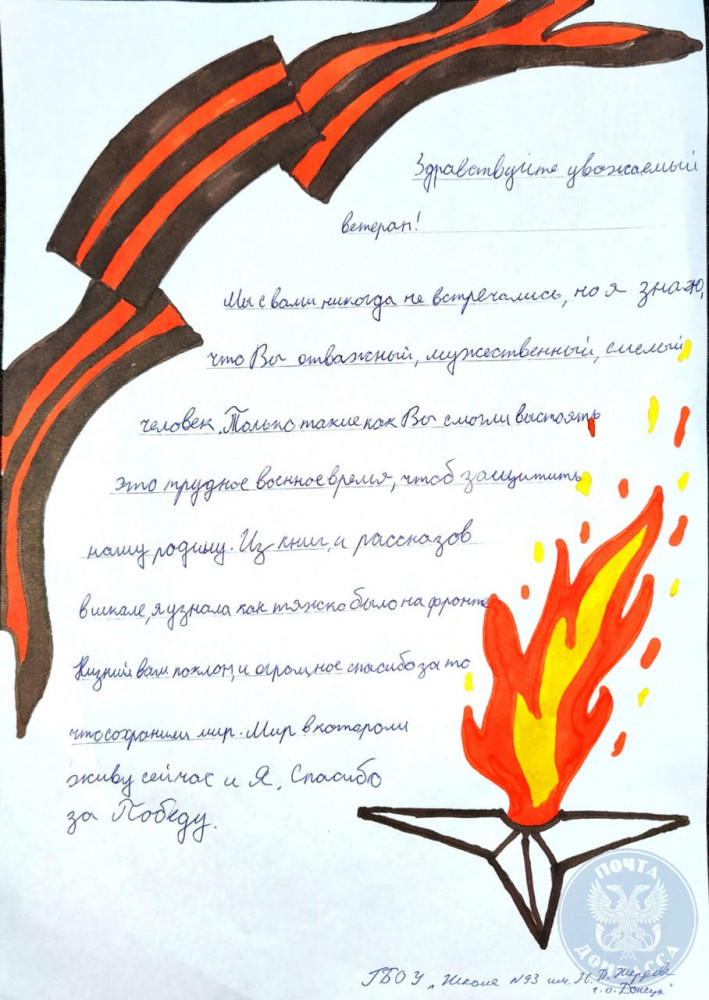 Здравствуйте уважаемый
ветеран!
Мы с вами никогда не встречались, но я знаю,
что Вы отважный, мужественный, смелый
человек. Только такие как Вы смогли выстоять
это трудное военное время, чтоб защитить
нашу родину. Из книг, и рассказов
в школе, я узнала как тяжко было на фронте
Низкий вам поклон, и огромное спасибо за то
что сохранили мир. Мир в котором
живу сейчас и Я. Спасибо
за Победу.
ПОЧТА
ДОНБАССА
ГБОУ "Школа №93 им. Н. П.
г. о. Донецк"